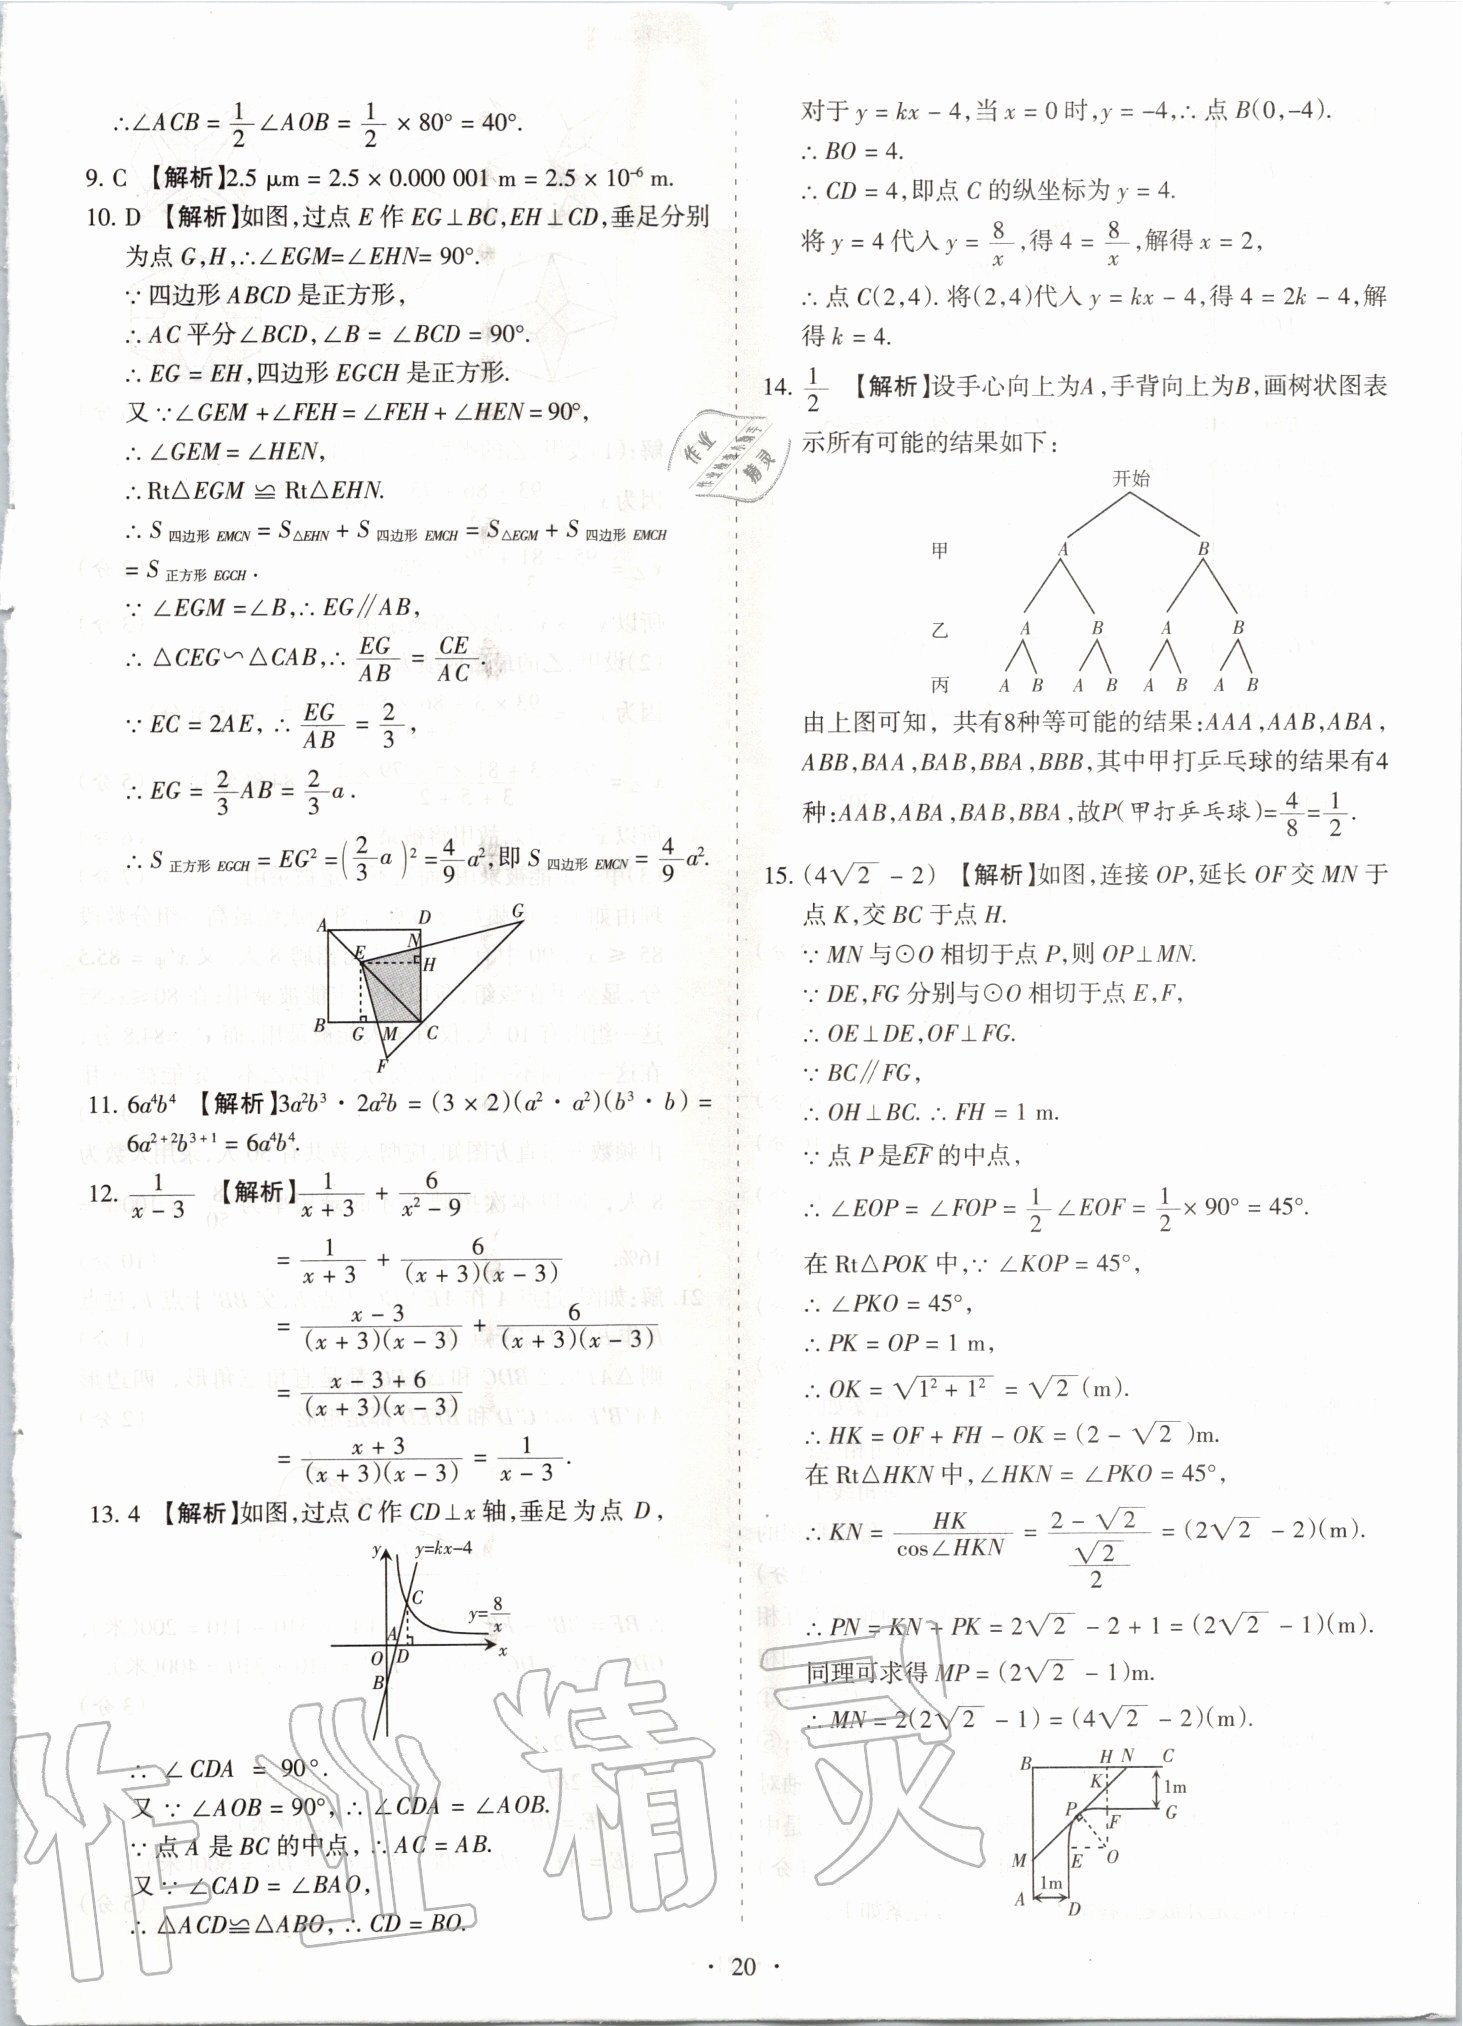 ∴∠ACB = 1/2 ∠AOB = 1/2 × 80° = 40°.
9. C 【解析】2.5 μm = 2.5 × 0.000 001 m = 2.5 × 10⁻⁶ m.
10. D 【解析】如图,过点 E 作 EG⊥BC,EH⊥CD,垂足分别
为点 G,H,∴∠EGM=∠EHN= 90°.
∵四边形 ABCD 是正方形,
∴AC 平分∠BCD,∠B = ∠BCD = 90°.
∴EG = EH,四边形 EGCH 是正方形.
又∵∠GEM +∠FEH = ∠FEH + ∠HEN = 90°,
∴∠GEM = ∠HEN,
∴Rt△EGM ≌ Rt△EHN.
∴ S 四边形 EMCN = S△EHN + S 四边形 EMCH = S△EGM + S 四边形 EMCH
= S 正方形 EGCH .
∵ ∠EGM =∠B,∴EG∥AB,
∴ △CEG∽△CAB,∴ EG/AB = CE/AC.
∵ EC = 2AE, ∴ EG/AB = 2/3 ,
∴ EG = 2/3 AB = 2/3 a .
∴ S 正方形 EGCH = EG² = (2/3 a)² = 4/9 a²,即 S 四边形 EMCN = 4/9 a².
A D G N E H B G M C F
11. 6a⁴b⁴ 【解析】3a²b³ · 2a²b = (3 × 2)(a² · a²)(b³ · b) =
6a²⁺²b³⁺¹ = 6a⁴b⁴.
12. 1/(x − 3) 【解析】1/(x + 3) + 6/(x² − 9)
= 1/(x + 3) + 6/((x + 3)(x − 3))
= (x − 3)/((x + 3)(x − 3)) + 6/((x + 3)(x − 3))
= (x − 3 + 6)/((x + 3)(x − 3))
= (x + 3)/((x + 3)(x − 3)) = 1/(x − 3).
13. 4 【解析】如图,过点 C 作 CD⊥x 轴,垂足为点 D,
y y=kx−4 C y=8/x A O D x B
∴ ∠CDA = 90°.
又∵ ∠AOB = 90°, ∴ ∠CDA = ∠AOB.
∵点 A 是 BC 的中点, ∴AC = AB.
又∵ ∠CAD = ∠BAO,
∴ △ACD≌△ABO, ∴CD = BO.
对于 y = kx − 4,当 x = 0 时,y = −4,∴点 B(0,−4).
∴ BO = 4.
∴ CD = 4,即点 C 的纵坐标为 y = 4.
将 y = 4 代入 y = 8/x ,得 4 = 8/x ,解得 x = 2,
∴点 C(2,4). 将(2,4)代入 y = kx − 4,得 4 = 2k − 4,解
得 k = 4.
14. 1/2 【解析】设手心向上为A,手背向上为B,画树状图表
示所有可能的结果如下:
开始
甲 A B
乙 A B A B
丙 A B A B A B A B
由上图可知, 共有8种等可能的结果:AAA,AAB,ABA,
ABB,BAA,BAB,BBA,BBB,其中甲打乒乓球的结果有4
种:AAB,ABA,BAB,BBA,故P(甲打乒乓球)=4/8=1/2.
15. (4√2 − 2) 【解析】如图,连接 OP,延长 OF 交 MN 于
点 K,交 BC 于点 H.
∵ MN 与⊙O 相切于点 P,则 OP⊥MN.
∵ DE,FG 分别与⊙O 相切于点 E,F,
∴ OE⊥DE,OF⊥FG.
∵ BC∥FG,
∴ OH⊥BC. ∴ FH = 1 m.
∵点 P 是EF 的中点,
∴ ∠EOP = ∠FOP = 1/2 ∠EOF = 1/2 × 90° = 45°.
在 Rt△POK 中,∵ ∠KOP = 45°,
∴ ∠PKO = 45°,
∴ PK = OP = 1 m,
∴ OK = √(1² + 1²) = √2 (m).
∴ HK = OF + FH − OK = (2 − √2)m.
在 Rt△HKN 中,∠HKN = ∠PKO = 45°,
∴ KN = HK/cos∠HKN = (2 − √2)/(√2/2) = (2√2 − 2)(m).
∴ PN = KN + PK = 2√2 − 2 + 1 = (2√2 − 1)(m).
同理可求得 MP = (2√2 − 1)m.
∴ MN = 2(2√2 − 1) = (4√2 − 2)(m).
B H N C K 1m P F G M E O 1m A D
· 20 ·
作业精灵